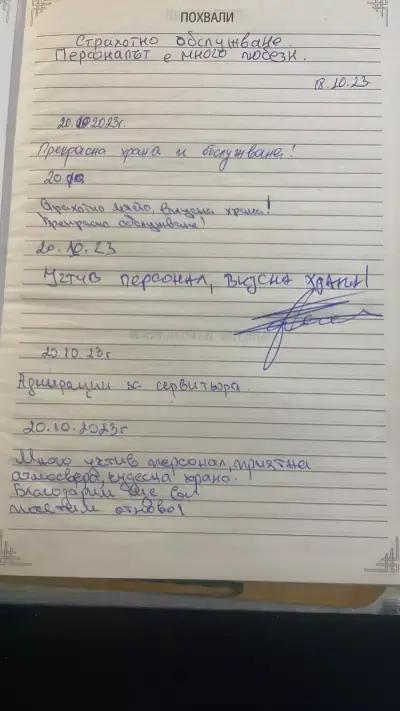 ПОХВАЛИ
Страхотно обслужване.
Персоналът е много любезн.
18.10.23
20.10.2023г.
Прекрасна храна и обслужване!
20.10
Страхотно място, вкусна храна!
Прекрасно обслужване!
20.10.23
Учтив персонал, вкусна храна!
20.10.23г
Адмирации за сервитьора.
20.10.2023г
Много учтив персонал, приятна
атмосфера, чудесна храна.
Благодарим Ще Ви
посетим отново!